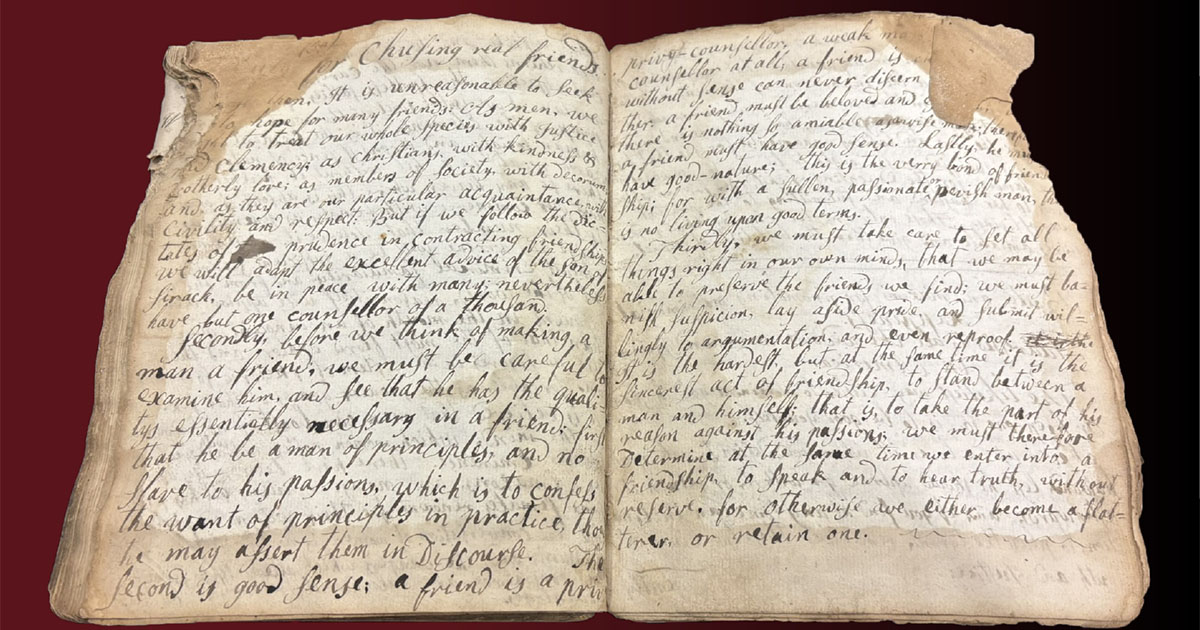 for Chusing real friends.
men. It is unreasonable to seek
hope for many friends. As men, we
to treat our whole species with Justice
and Clemency; as christians, with kindness &
brotherly love; as members of society, with decorum
and, as they are our particular acquaintance, with
Civility and respect. But if we follow the dic-
tates of prudence in contracting friendships
we will adapt the excellent advice of the son of
Sirack, be in peace with many; nevertheless
have but one counsellor of a thousand.
Secondly, before we think of making a
man a friend, we must be careful to
examine him, and see that he has the quali-
tys essentially necessary in a friend; first
that he be a man of principles, and no
slave to his passions, which is to confess
the want of principles in practice, tho
he may assert them in Discourse. The
second is good sense; a friend is a priv
privy-counsellor, a weak man
counsellor at all, a friend is
without sense can never discern
ther a friend, must be beloved and
there is nothing so amiable as a wise man;
a friend must have good sense. Lastly, he must
have good-nature; this is the verry bond of friend
ship; for with a sullen, passionate or pevish man, th
is no living upon good terms.
Thirdly, we must take care to set all
things right in our own minds, that we may be
able to preserve the friends we find; we must ba-
nish suspicion, lay aside pride, and submit wil-
lingly to argumentation, and even reproof.
It is the hardest, but at the same time it is the
sincerest act of friendship, to stand between a
man and himself; that is, to take the part of his
reason against his passions; we must therefore
Determine at the same time we enter into a
friendship, to speak and to hear truth, without
reserve, for otherwise we either become a flat-
terer, or retain one.